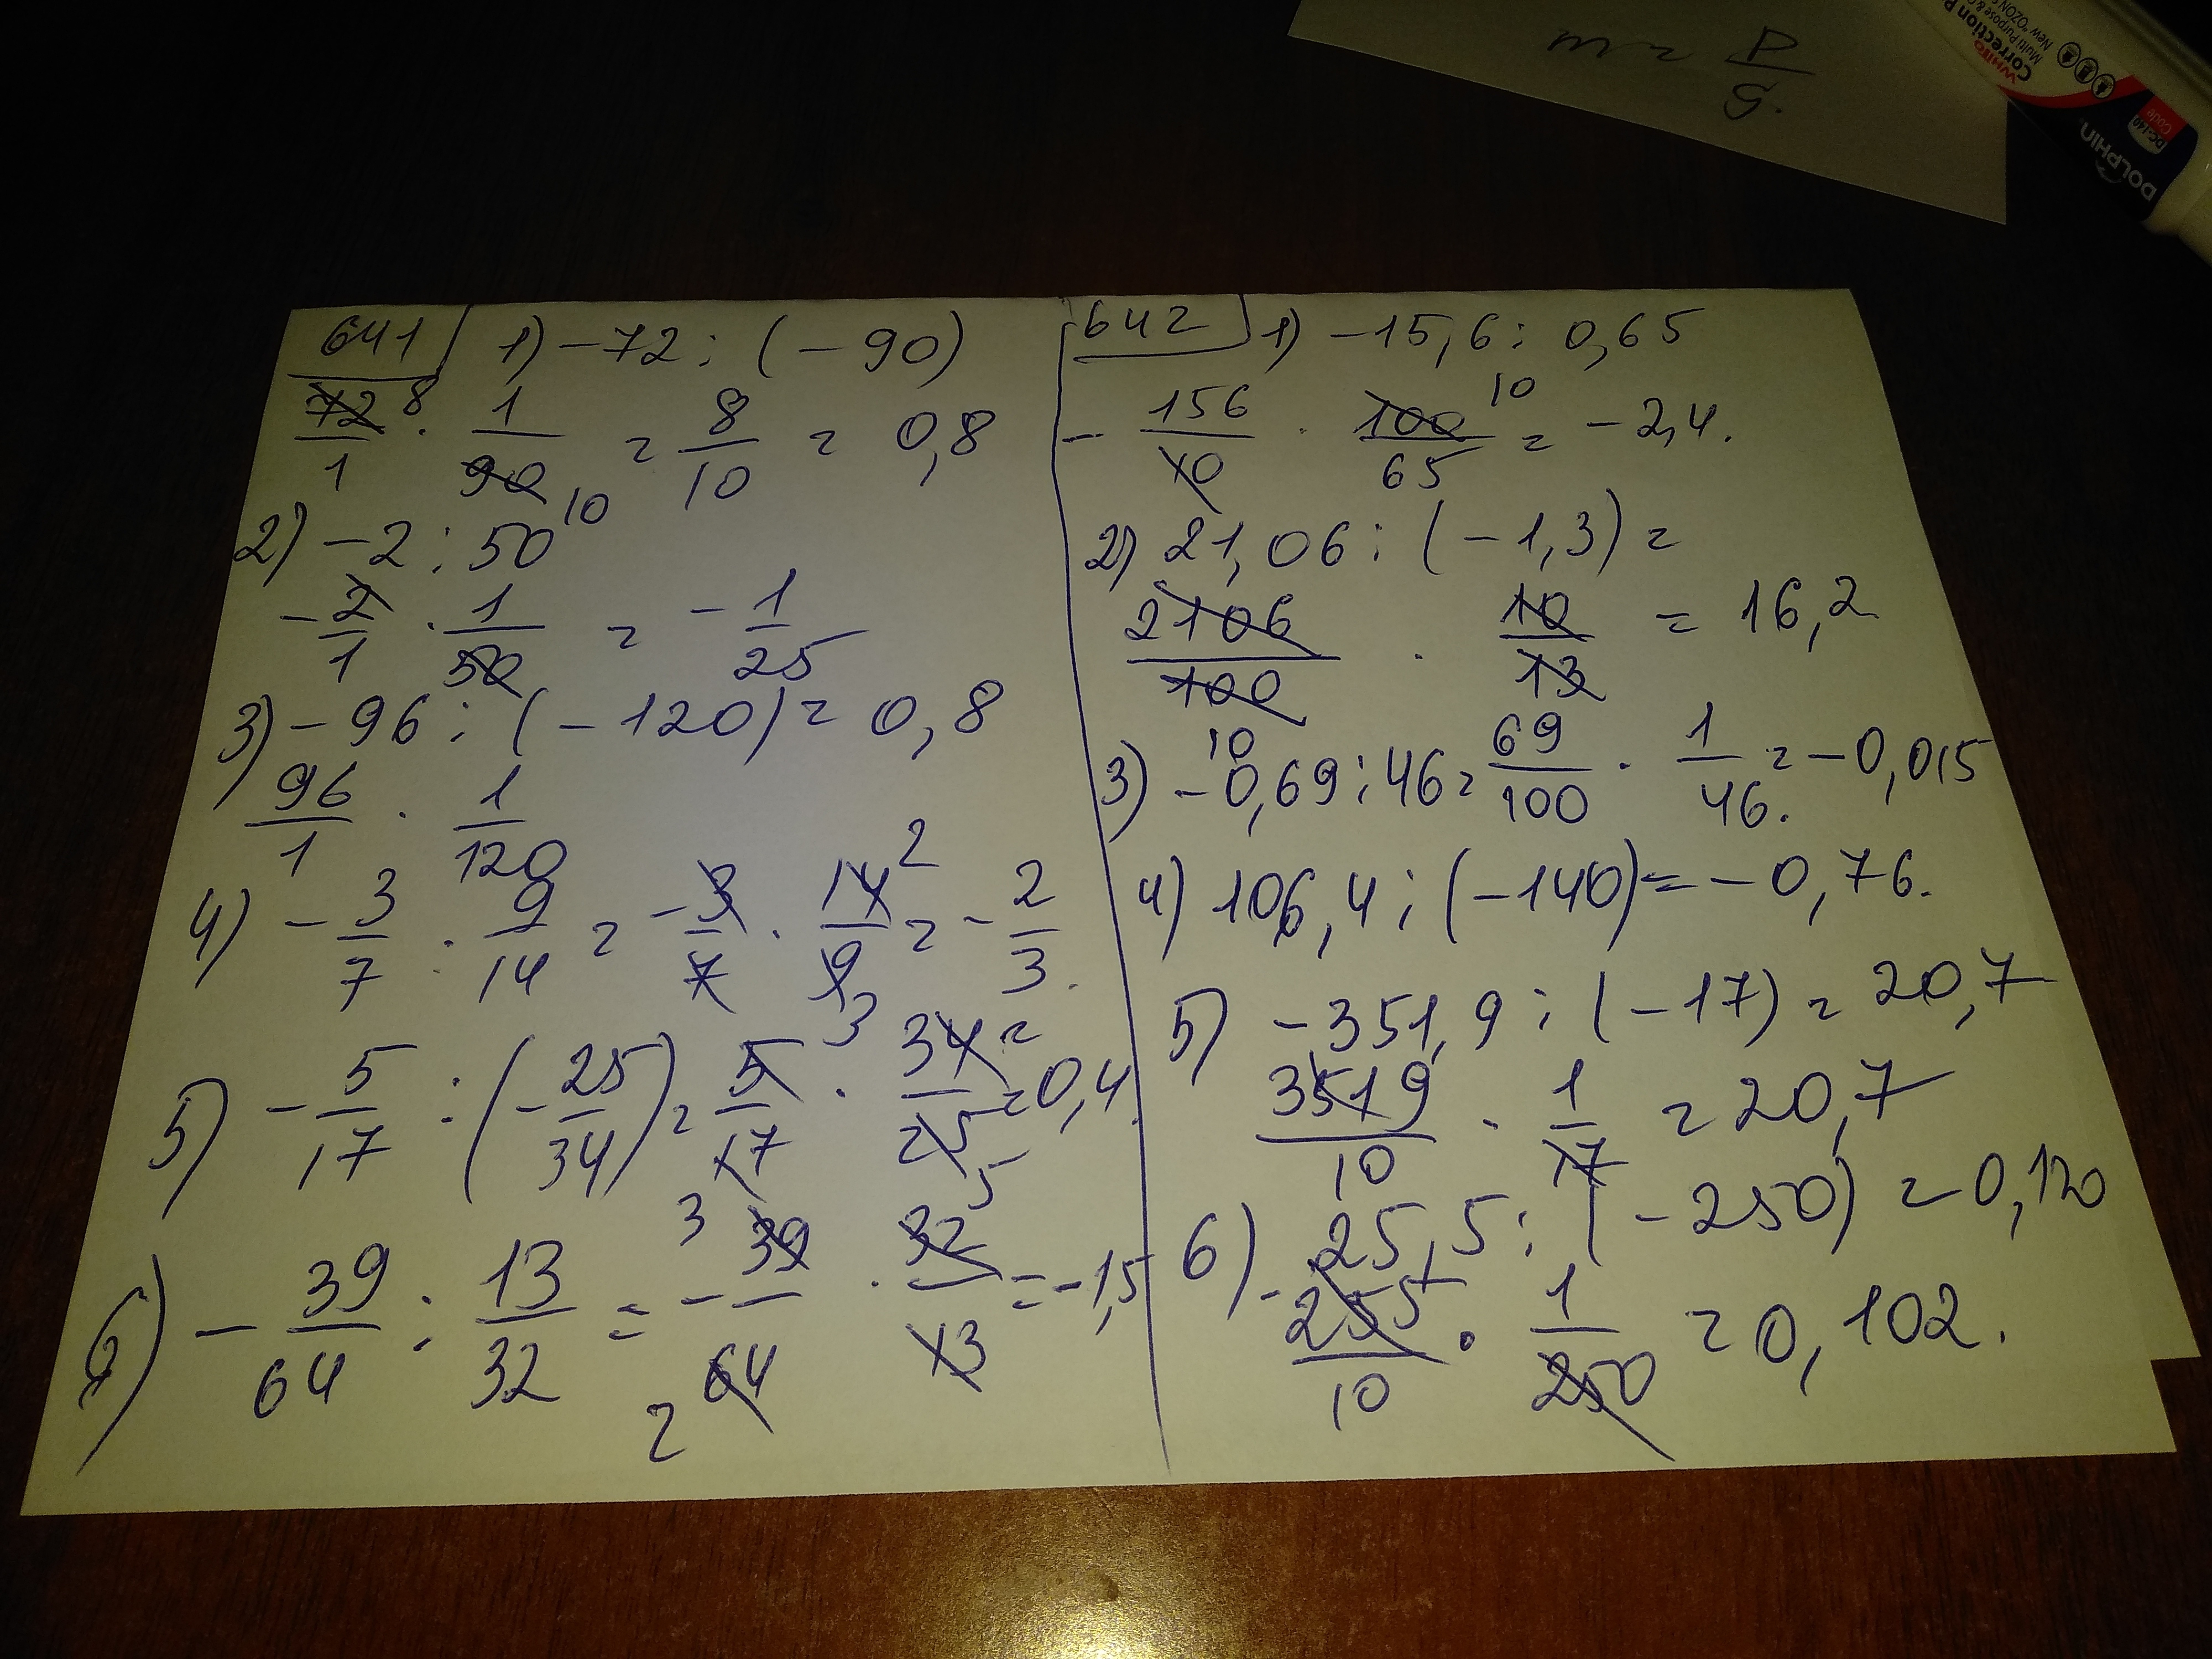 m = P/g.
WHITO
Correction P
Multi Purpose &
New "OZON S
DOLPHIN
DC-140
Code
641
1) -72 : (-90)
72/1 8 · 1/90 10 = 8/10 = 0,8
2) -2 : 50
-2/1 · 1/50 = -1/25
3) -96 : (-120) = 0,8
96/1 · 1/120
4) -3/7 : 9/14 = -3/7 · 14/9 2 3 = -2/3.
5) -5/17 : (-25/34) = 5/17 · 34/25 2 5 = 0,4.
6) -39/64 : 13/32 = -39/64 3 2 · 32/13 = -1,5
642
1) -15,6 : 0,65
-156/10 · 100/65 10 = -2,4.
2) 21,06 : (-1,3) =
2106/100 10 · 10/13 = 16,2
3) -0,69 : 46 = 69/100 · 1/46. = -0,015
4) 106,4 : (-140) = -0,76.
5) -351,9 : (-17) = 20,7
3519/10 · 1/17 = 20,7
6) -25,5 : (-250) = 0,120
255/10 · 1/250 = 0,102.